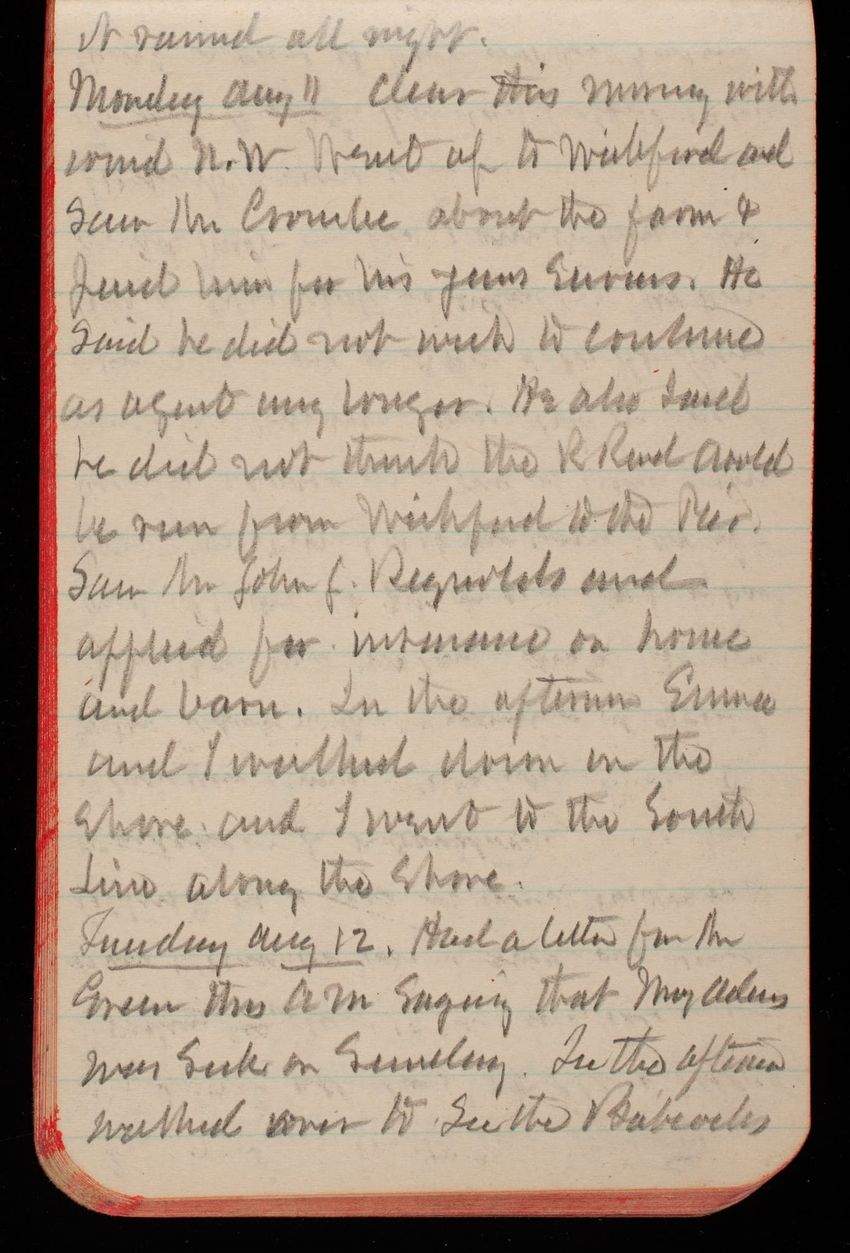 it rained all night.
Monday Aug 11 Clear this morning with
wind N.W. Went up to Wickford and
saw Mr Crombe about the farm &
paid him for his years services. He
said he did not wish to continue
as agent any longer. He also said
he did not think the R Road could
be run from Wickford to the Pier.
Saw Mr John J. Reynolds and
applied for insurance on house
and barn. In the afternoon Emma
and I walked down on the
shore and I went to the South
Line along the shore.
Tuesday Aug 12. Had a letter from Mr
Green this AM saying that Mrs Adams
was sick on Sunday. In the afternoon
walked over to see the Babcocks